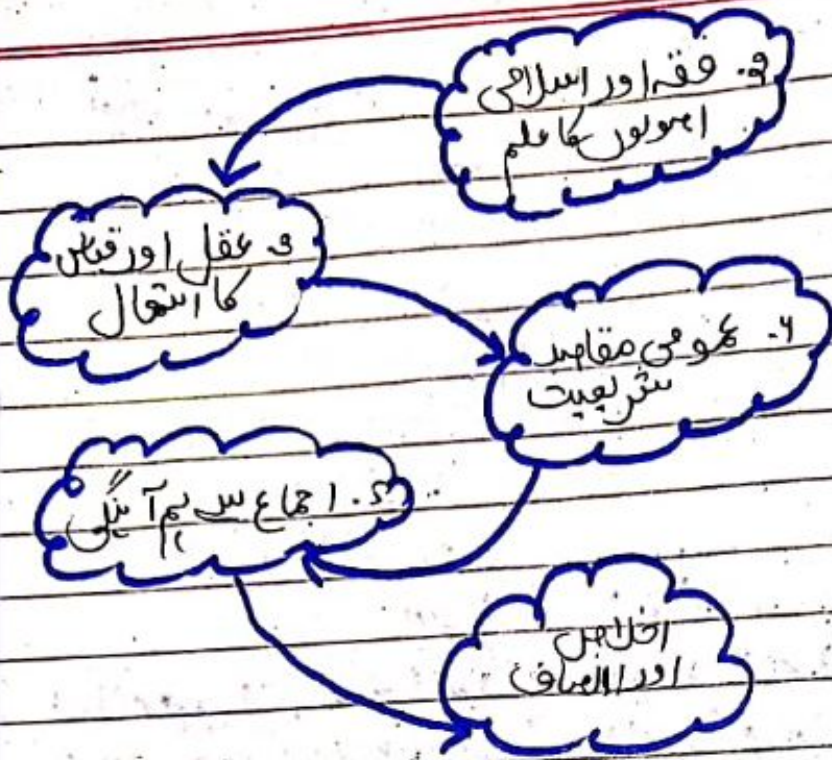 ۴. فقہ اور اسلامی
اصولوں کا علم
۵. عقل اور قیاس
کا استعمال
۶. عمومی مقاصد
شریعت
۷. اجماع سے ہم آہنگی
اخلاص
اور انصاف